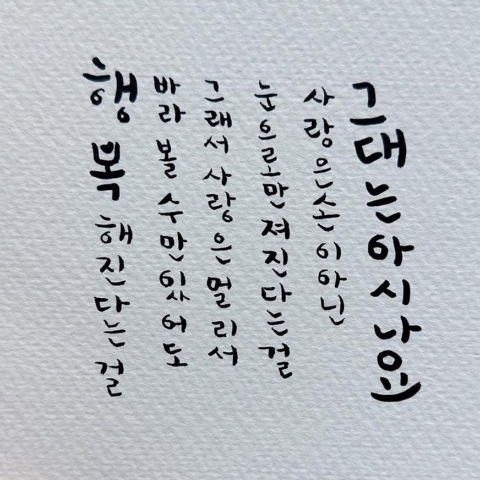 그대는아시나요
사랑은손이아닌
눈으로만져진다는걸
그래서사랑은멀리서
바라볼수만있어도
행복해진다는걸